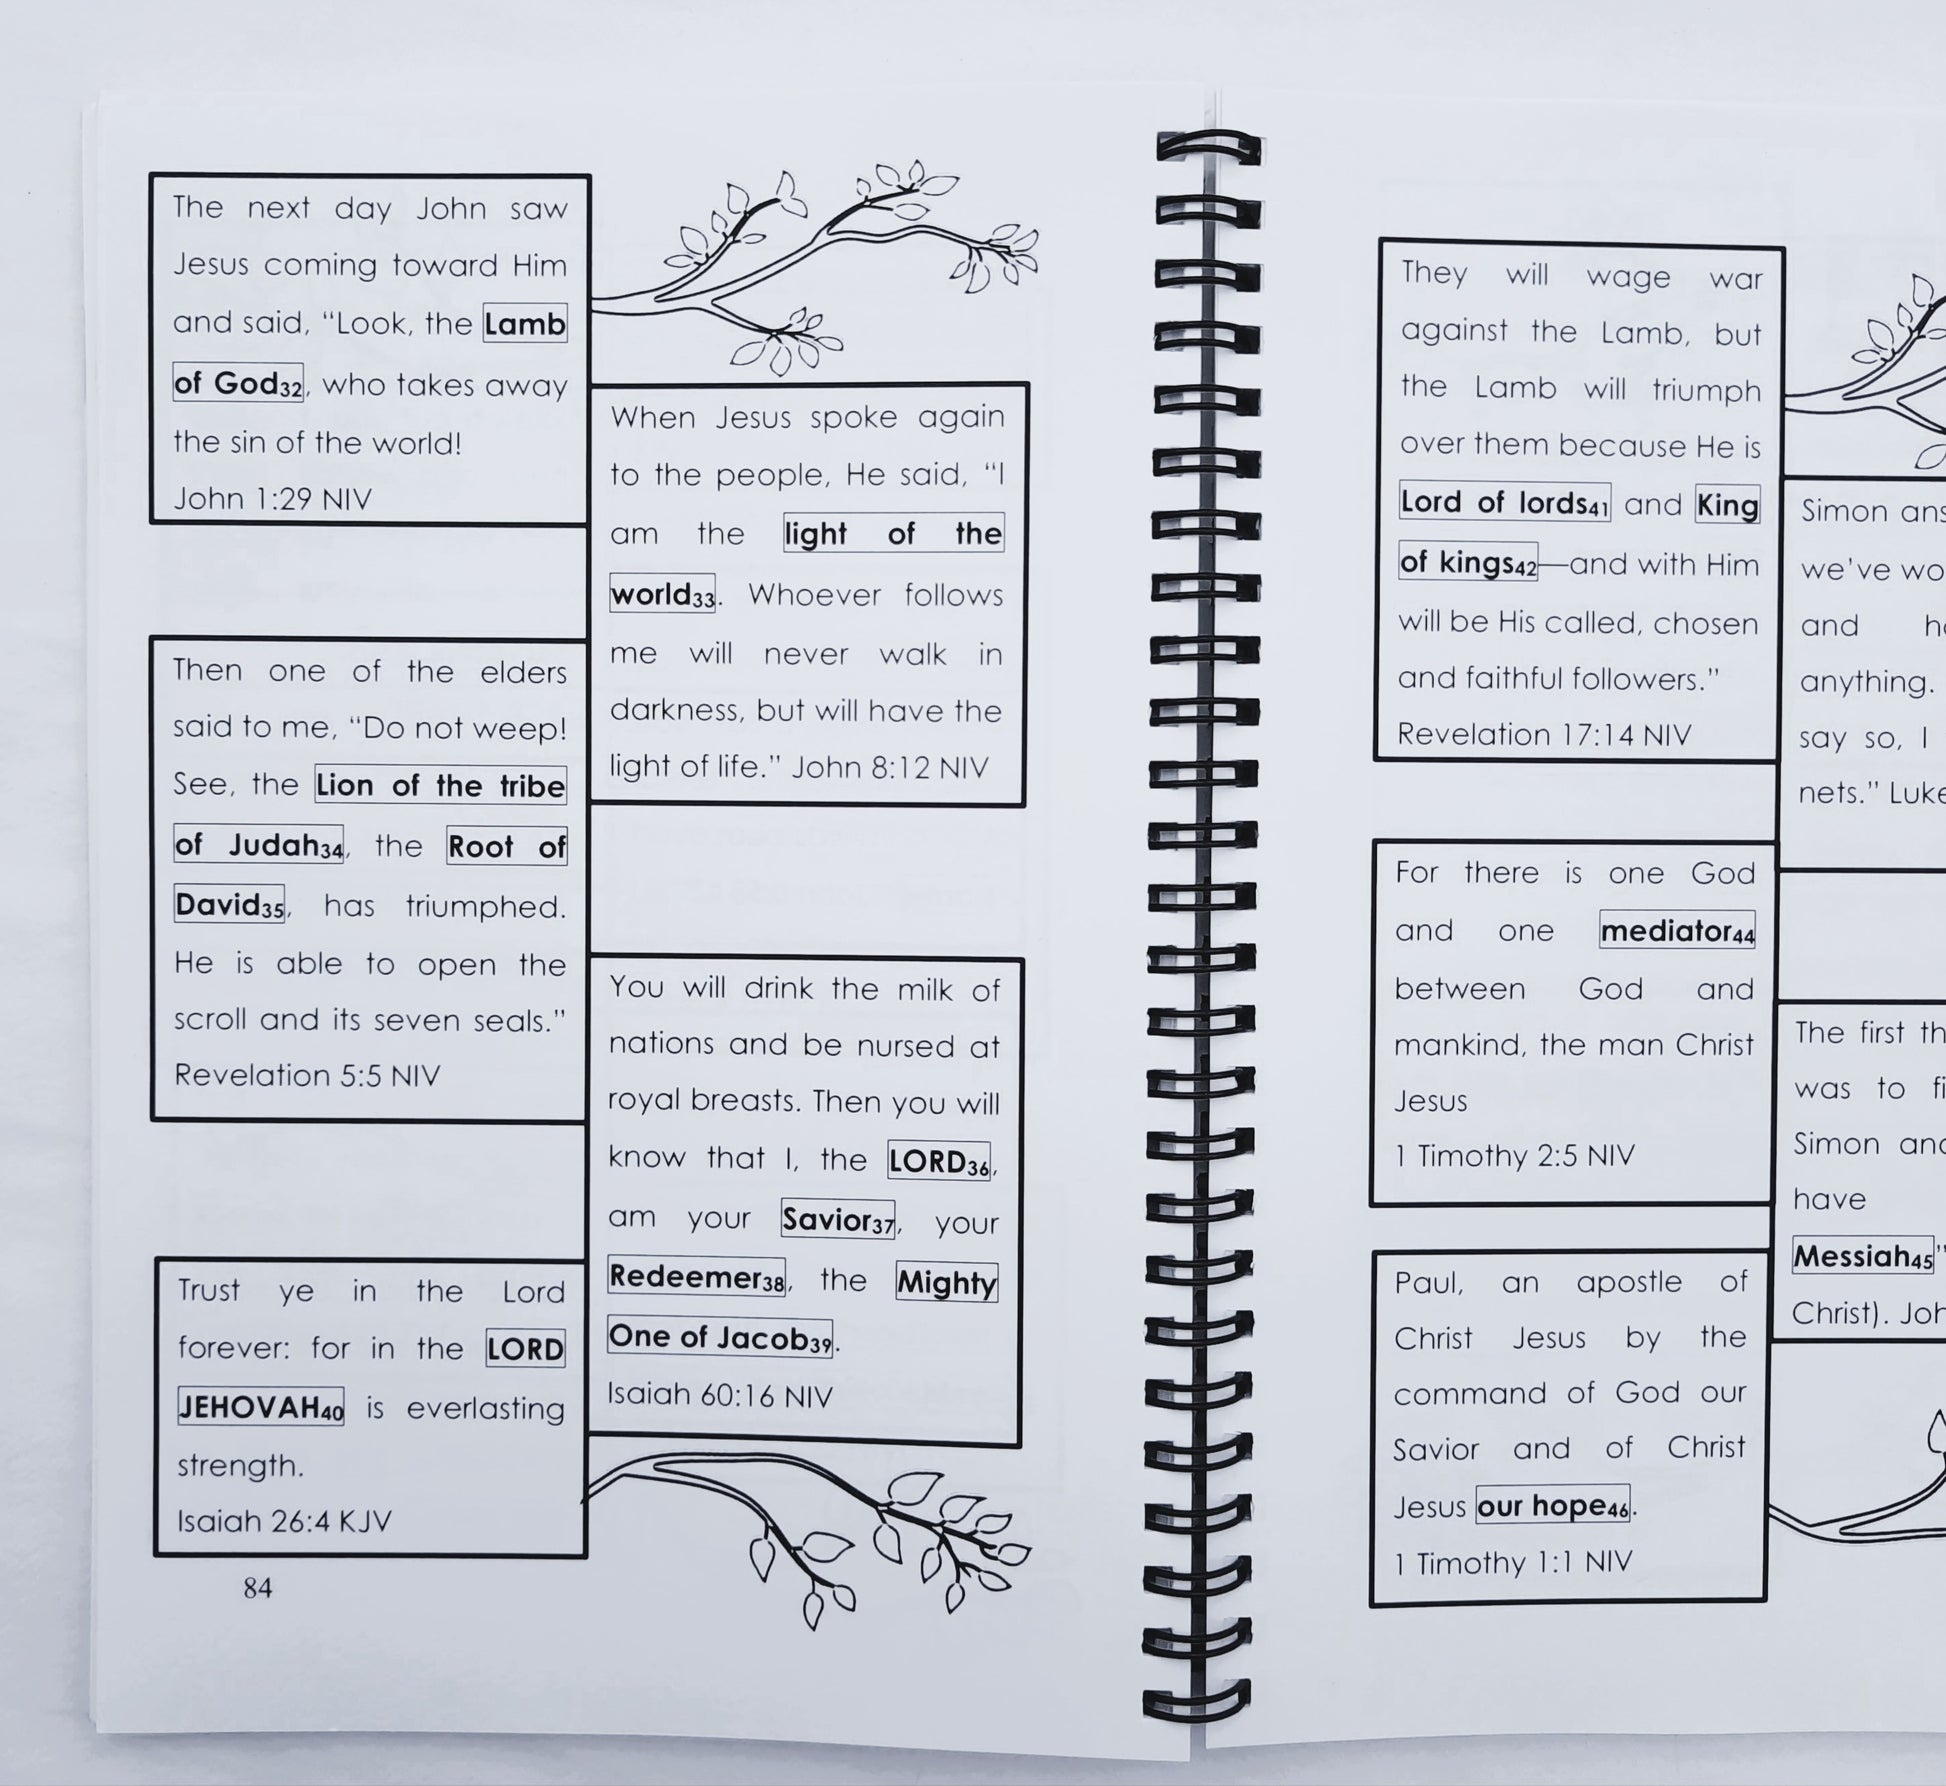 The next day John saw
Jesus coming toward Him
and said, “Look, the Lamb
of God32, who takes away
the sin of the world!
John 1:29 NIV
When Jesus spoke again
to the people, He said, “I
am the light of the
world33. Whoever follows
me will never walk in
darkness, but will have the
light of life.” John 8:12 NIV
Then one of the elders
said to me, “Do not weep!
See, the Lion of the tribe
of Judah34, the Root of
David35, has triumphed.
He is able to open the
scroll and its seven seals.”
Revelation 5:5 NIV
You will drink the milk of
nations and be nursed at
royal breasts. Then you will
know that I, the LORD36,
am your Savior37, your
Redeemer38, the Mighty
One of Jacob39.
Isaiah 60:16 NIV
Trust ye in the Lord
forever: for in the LORD
JEHOVAH40 is everlasting
strength.
Isaiah 26:4 KJV
84
They will wage war
against the Lamb, but
the Lamb will triumph
over them because He is
Lord of lords41 and King
of kings42—and with Him
will be His called, chosen
and faithful followers.”
Revelation 17:14 NIV
Simon
we’ve
and
anything.
say so, I
nets.” Luke
For there is one God
and one mediator44
between God and
mankind, the man Christ
Jesus
1 Timothy 2:5 NIV
The first
was to
Simon
have
Messiah45”
Christ).
Paul, an apostle of
Christ Jesus by the
command of God our
Savior and of Christ
Jesus our hope46.
1 Timothy 1:1 NIV